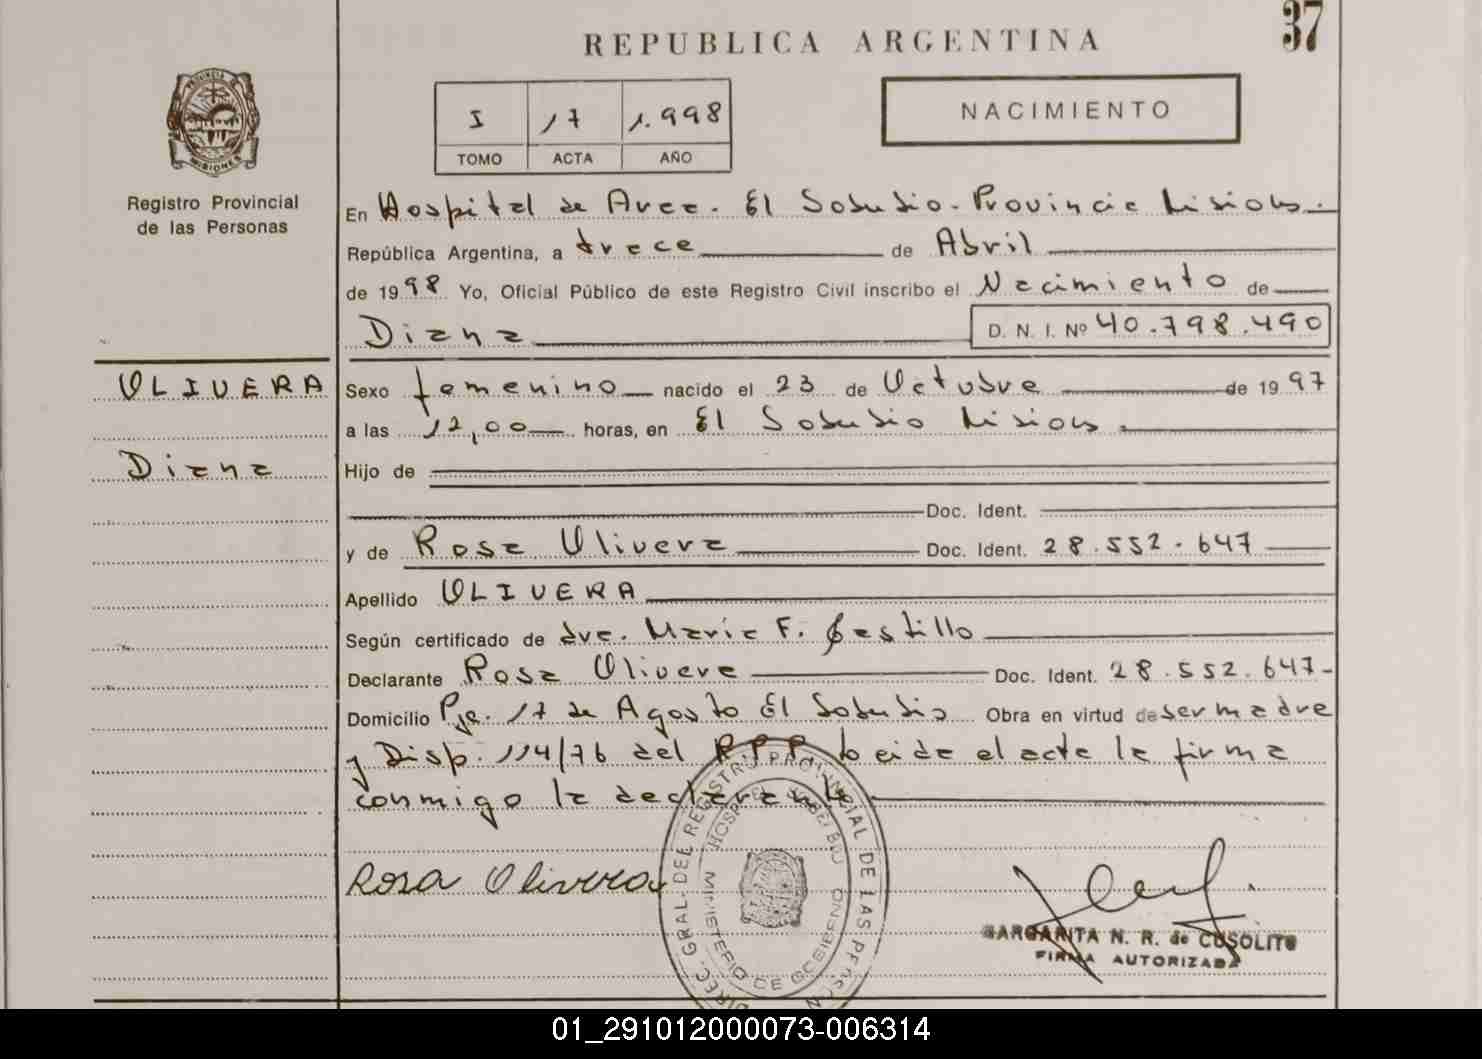 37
REPUBLICA ARGENTINA
I 17 1.998
TOMO ACTA AÑO
NACIMIENTO
PROVINCIA DE
MISIONES
Registro Provincial
de las Personas
En Hospital de Area. El Soberbio. Provincia Misiones.
República Argentina, a trece de Abril
de 1998 Yo, Oficial Público de este Registro Civil inscribo el Nacimiento de
Diana D. N. I. Nº 40.798.490
OLIVERA
Diana
Sexo femenino nacido el 23 de Octubre de 1997
a las 12,00 horas, en El Soberbio Misiones.
Hijo de
Doc. Ident.
y de Rosa Olivera Doc. Ident. 28.552.647
Apellido OLIVERA
Según certificado de dra. Maria F. Castillo
Declarante Rosa Olivera Doc. Ident. 28.552.647-
Domicilio Pje. 17 de Agosto El Soberbio Obra en virtud de ser madre
y Disp. 114/76 del R.P.P. leida el acta la firma
conmigo la declarante
Rosa Olivera
DIREC. GRAL. DEL REGISTRO PROVINCIAL DE LAS PERSON
MINISTERIO DE GOBIERNO
MARGARITA N. R. de CUSOLITO
FIRMA AUTORIZADA
01_291012000073-006314